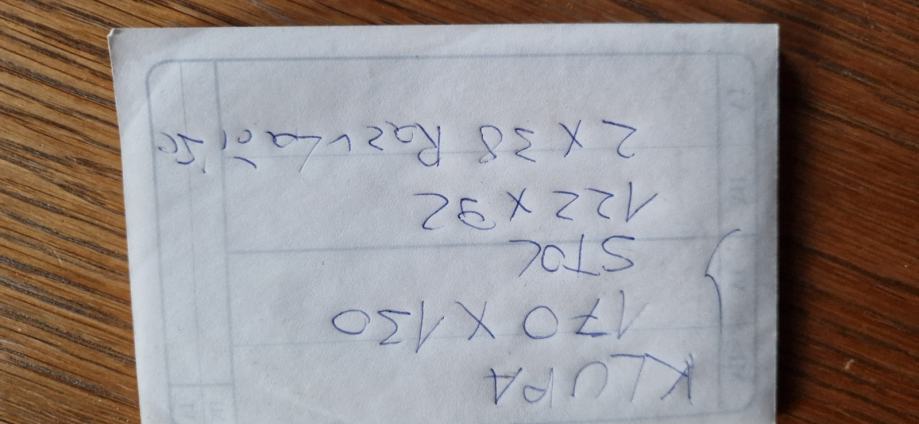 KLUPA
170 X 130
STOL
122 X 92
2 X 38 Razvlačise